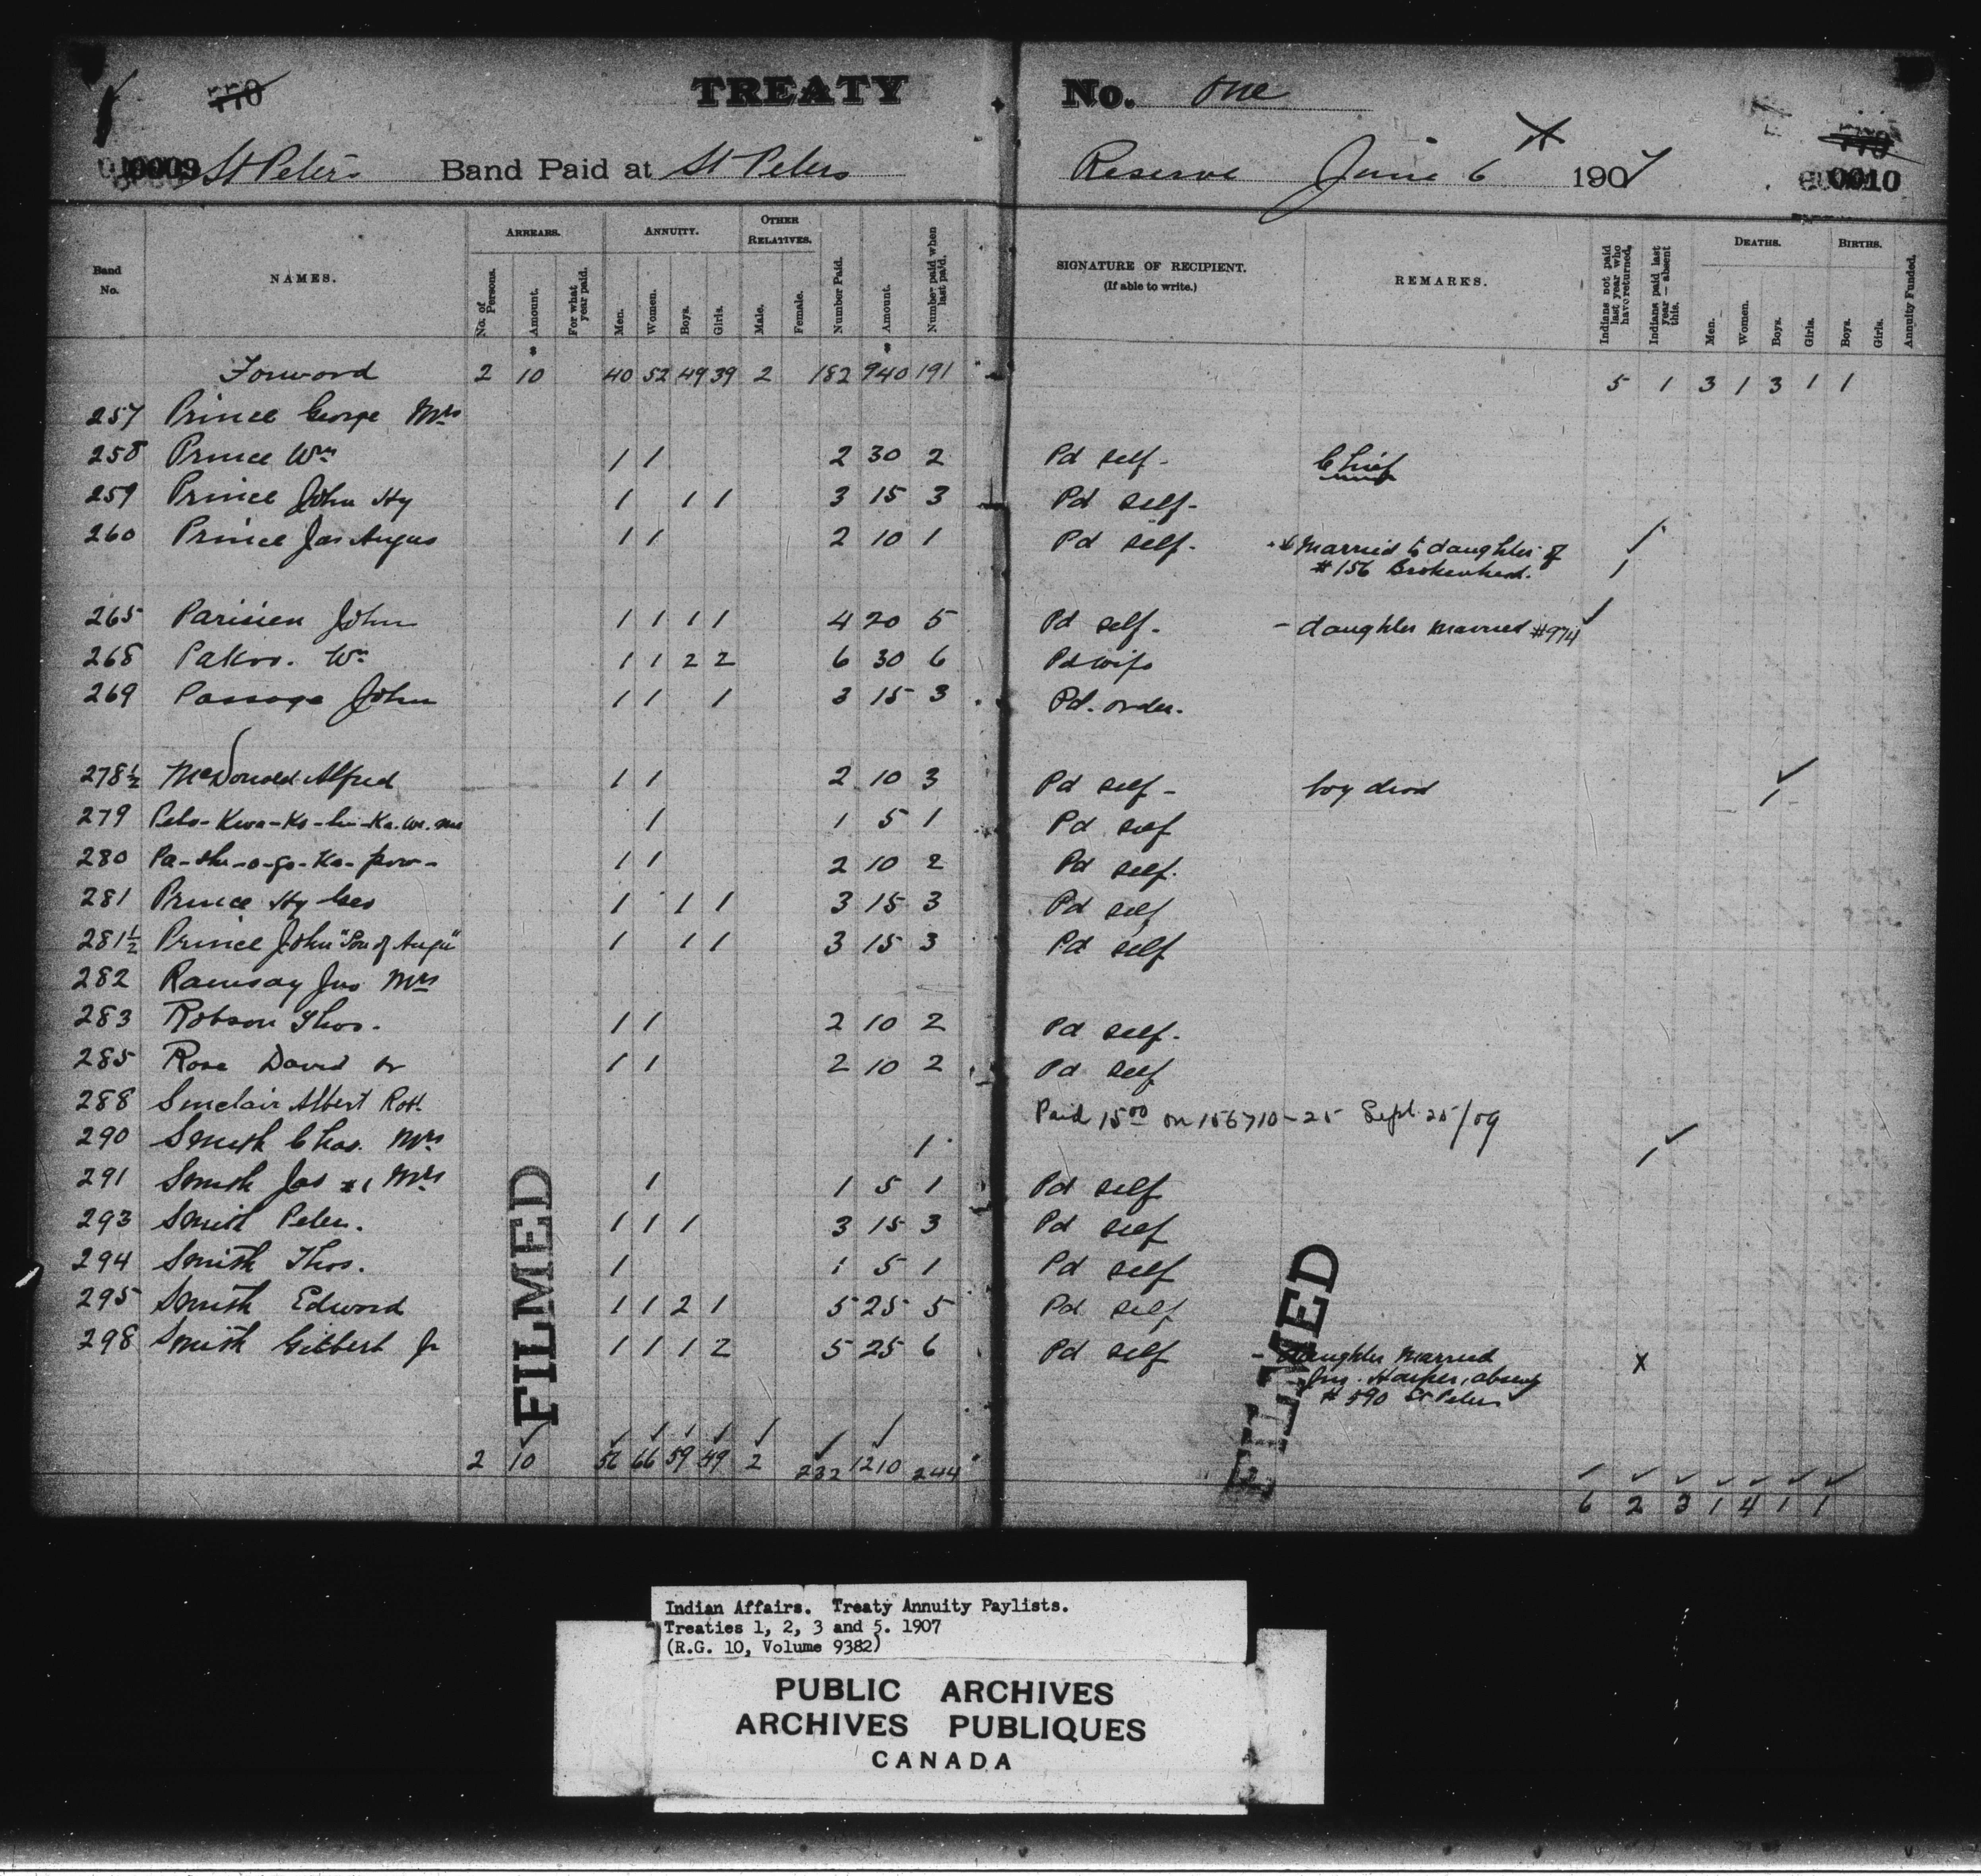 770
TREATY No. One
770
0009 St Peters Band Paid at St Peters Reserve June 6 1907 0010
Band No.
NAMES.
ARREARS.
No. of Persons.
Amount.
For what year paid.
ANNUITY.
Men.
Women.
Boys.
Girls.
OTHER RELATIVES.
Male.
Female.
Number Paid.
Amount.
Number paid when last paid.
SIGNATURE OF RECIPIENT.
(If able to write.)
REMARKS.
Indians not paid last year who have returned.
Indians paid last year—absent this.
DEATHS.
Men.
Women.
Boys.
Girls.
BIRTHS.
Boys.
Girls.
Annuity Funded.
Forword 2 10 40 52 49 39 2 182 940 191 5 1 3 1 3 1 1
257 Prince George Mrs
258 Prince Wm 1 1 2 30 2 Pd self - Chief
259 Prince John Hy 1 1 1 3 15 3 Pd self -
260 Prince Jas Angus 1 1 2 10 1 Pd self - Married to daughter of
#156 Brokenhead. 1
265 Parisien John 1 1 1 1 4 20 5 Pd self - - daughter married #974
268 Wm 1 1 2 2 6 30 6 Pd wife
269 Passage John 1 1 1 3 15 3 Pd. order.
278½ McDonald Alfred 1 1 2 10 3 Pd self - boy died 1
279 1 1 5 1 Pd self
280 Pa-she-o-go-Ka-pow- 1 1 2 10 2 Pd self.
281 Prince Hy Geo 1 1 1 3 15 3 Pd self
281½ Prince John "Son of Angus" 1 1 1 3 15 3 Pd self
282 Ramsay Jno Mrs
283 Robson Thos. 1 1 2 10 2 Pd self.
285 Rose David Sr 1 1 2 10 2 Pd self
288 Sinclair Albert Robt. Paid 15 00 on 156710-25 Sept 25/09
290 Smith Chas. Mrs 1 1
291 Smith Jas #1 Mrs 1 1 5 1 Pd self
293 Smith Peter. 1 1 1 3 15 3 Pd self
294 Smith Thos. 1 1 5 1 Pd self
295 Smith Edward 1 1 2 1 5 25 5 Pd self
298 Smith Gilbert Jr 1 1 1 2 5 25 6 Pd self - Daughter Married X
Jas. Harper, absent
#590 St Peters
FILMED
FILMED
2 10 56 66 59 49 2 232 1210 244 6 2 3 1 4 1 1
Indian Affairs. Treaty Annuity Paylists.
Treaties 1, 2, 3 and 5. 1907
(R.G. 10, Volume 9382)
PUBLIC ARCHIVES
ARCHIVES PUBLIQUES
CANADA